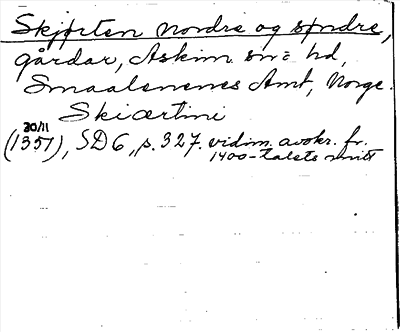 Skjørten nordre og søndre,
gårdar, Askim sn = hd,
Smaalenenes Amt, Norge.
Skiærtini
30/11
(1357), SD 6, p. 327. vidim. avskr. fr.
1400-talets mitt